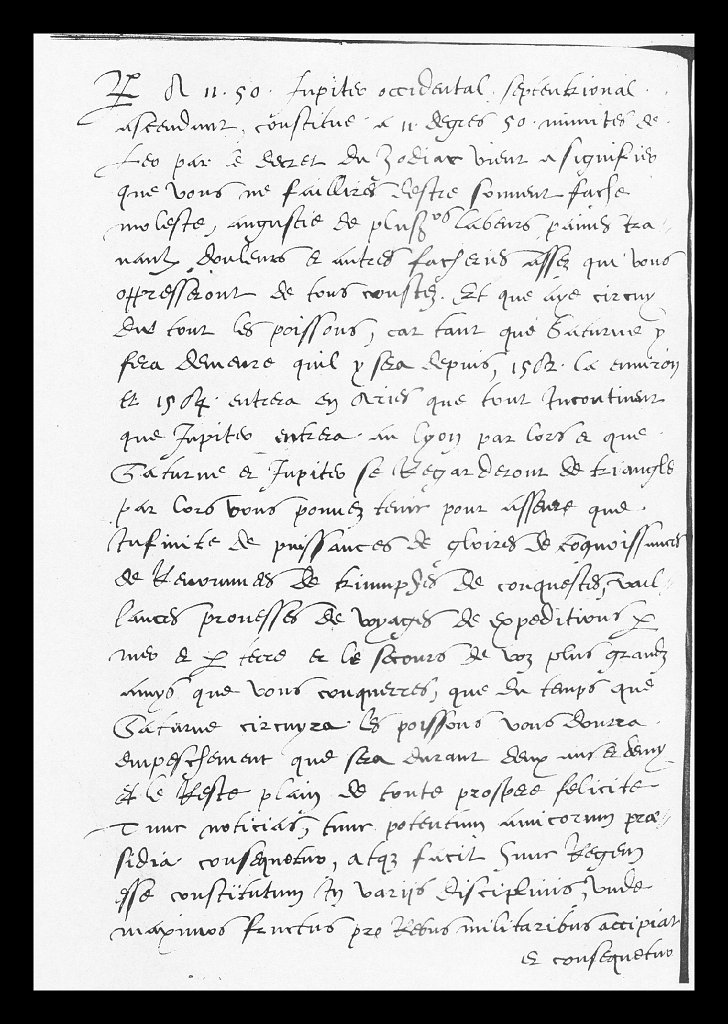 A 11 . 50 . Jupiter occidental . septentrional .
ascendant, constitue . a 11 degres 50 . minutes de
Leo par le decret du Zodiac vient a signifier
que vous ne faillires destre souvent fache
moleste, angustie de plus^rs labeurs paines tra-
vaulx douleurs et autres facheries asses qui vous
oppresseront de tous constez . Et que aye circuy
du tout les poissons, car tant que Saturne y
fera demeure quil y sera depuis, 1562 . la environ
et 1564 . entrera en Aries que tout Incontinent
que Jupiter entrera . au lyon par lors et que
Saturne et Jupiter se Regarderont de triangle
par lors vous pouvez tenir pour assure que .
Infinite de puissances de gloires de coqnoissances
de Renommes de triumphes de conquestes, vail-
lances prouesses de voyages de expeditions p
mer et p terre et le secours de voz plus grandz
amys que vous conquerres, que du temps que
Saturne circuyra . les poissons vous donrra .
empeschement que sera durant deux ans et demy
et le Reste plain de toute prospere felicite
Tunc noticias, tunc potentum amicorum præ-
sidia consequetur, atqz facit hunc Regem
esse constitutum In varijs disciplinis, unde
maximos fructus pro Rebus militaribus accipiat
et consequetur